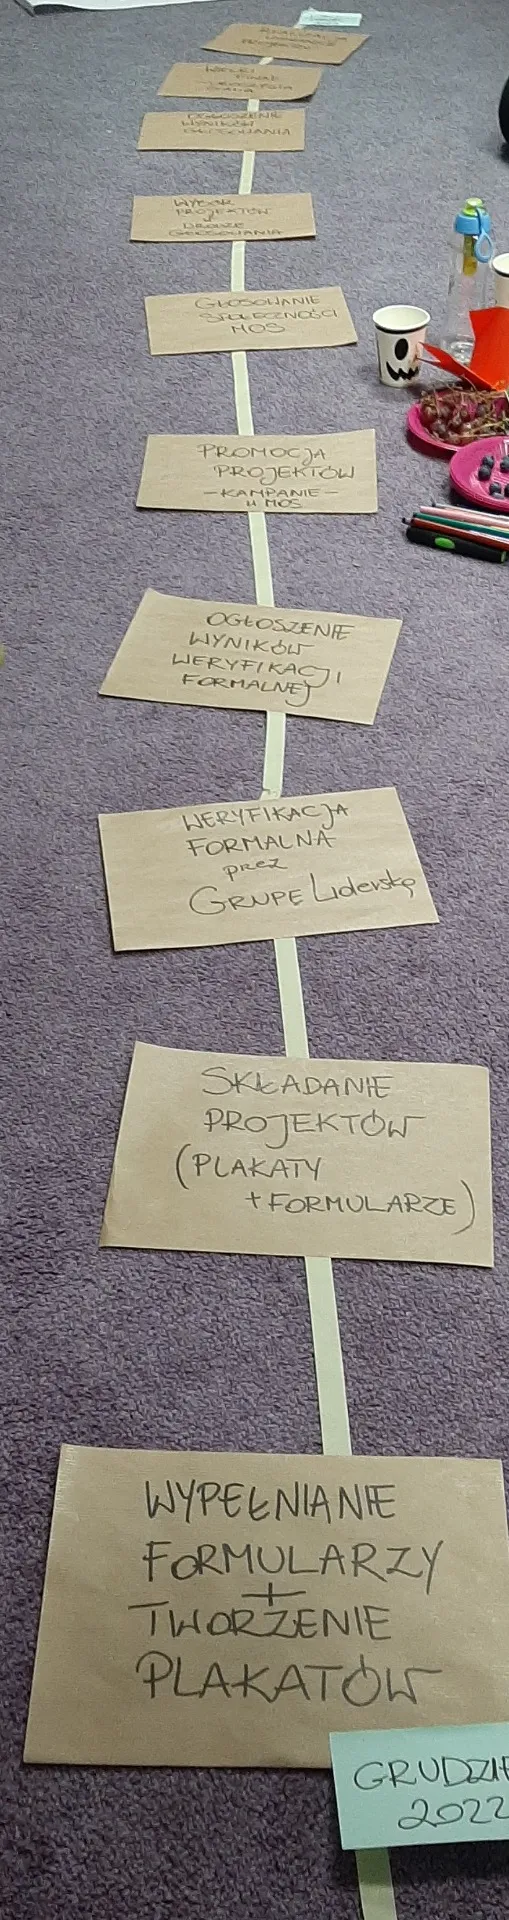 PROJEKTÓW
WIELKI
FINAŁ
OGŁOSZENIE
WYNIKÓW
GŁOSOWANIA
WYBÓR
PROJEKTÓW
W
DRODZE
GŁOSOWANIA
GŁOSOWANIE
SPOŁECZNOŚCI
MOS
PROMOCJA
PROJEKTÓW
- KAMPANIE -
W MOS
OGŁOSZENIE
WYNIKÓW
WERYFIKACJI
FORMALNEJ
WERYFIKACJA
FORMALNA
prez
GRUPE Liderskę
SKŁADANIE
PROJEKTÓW
(PLAKATY
+ FORMULARZE)
WYPEŁNIANIE
FORMULARZY
+
TWORZENIE
PLAKATÓW
GRUDZIE
2022